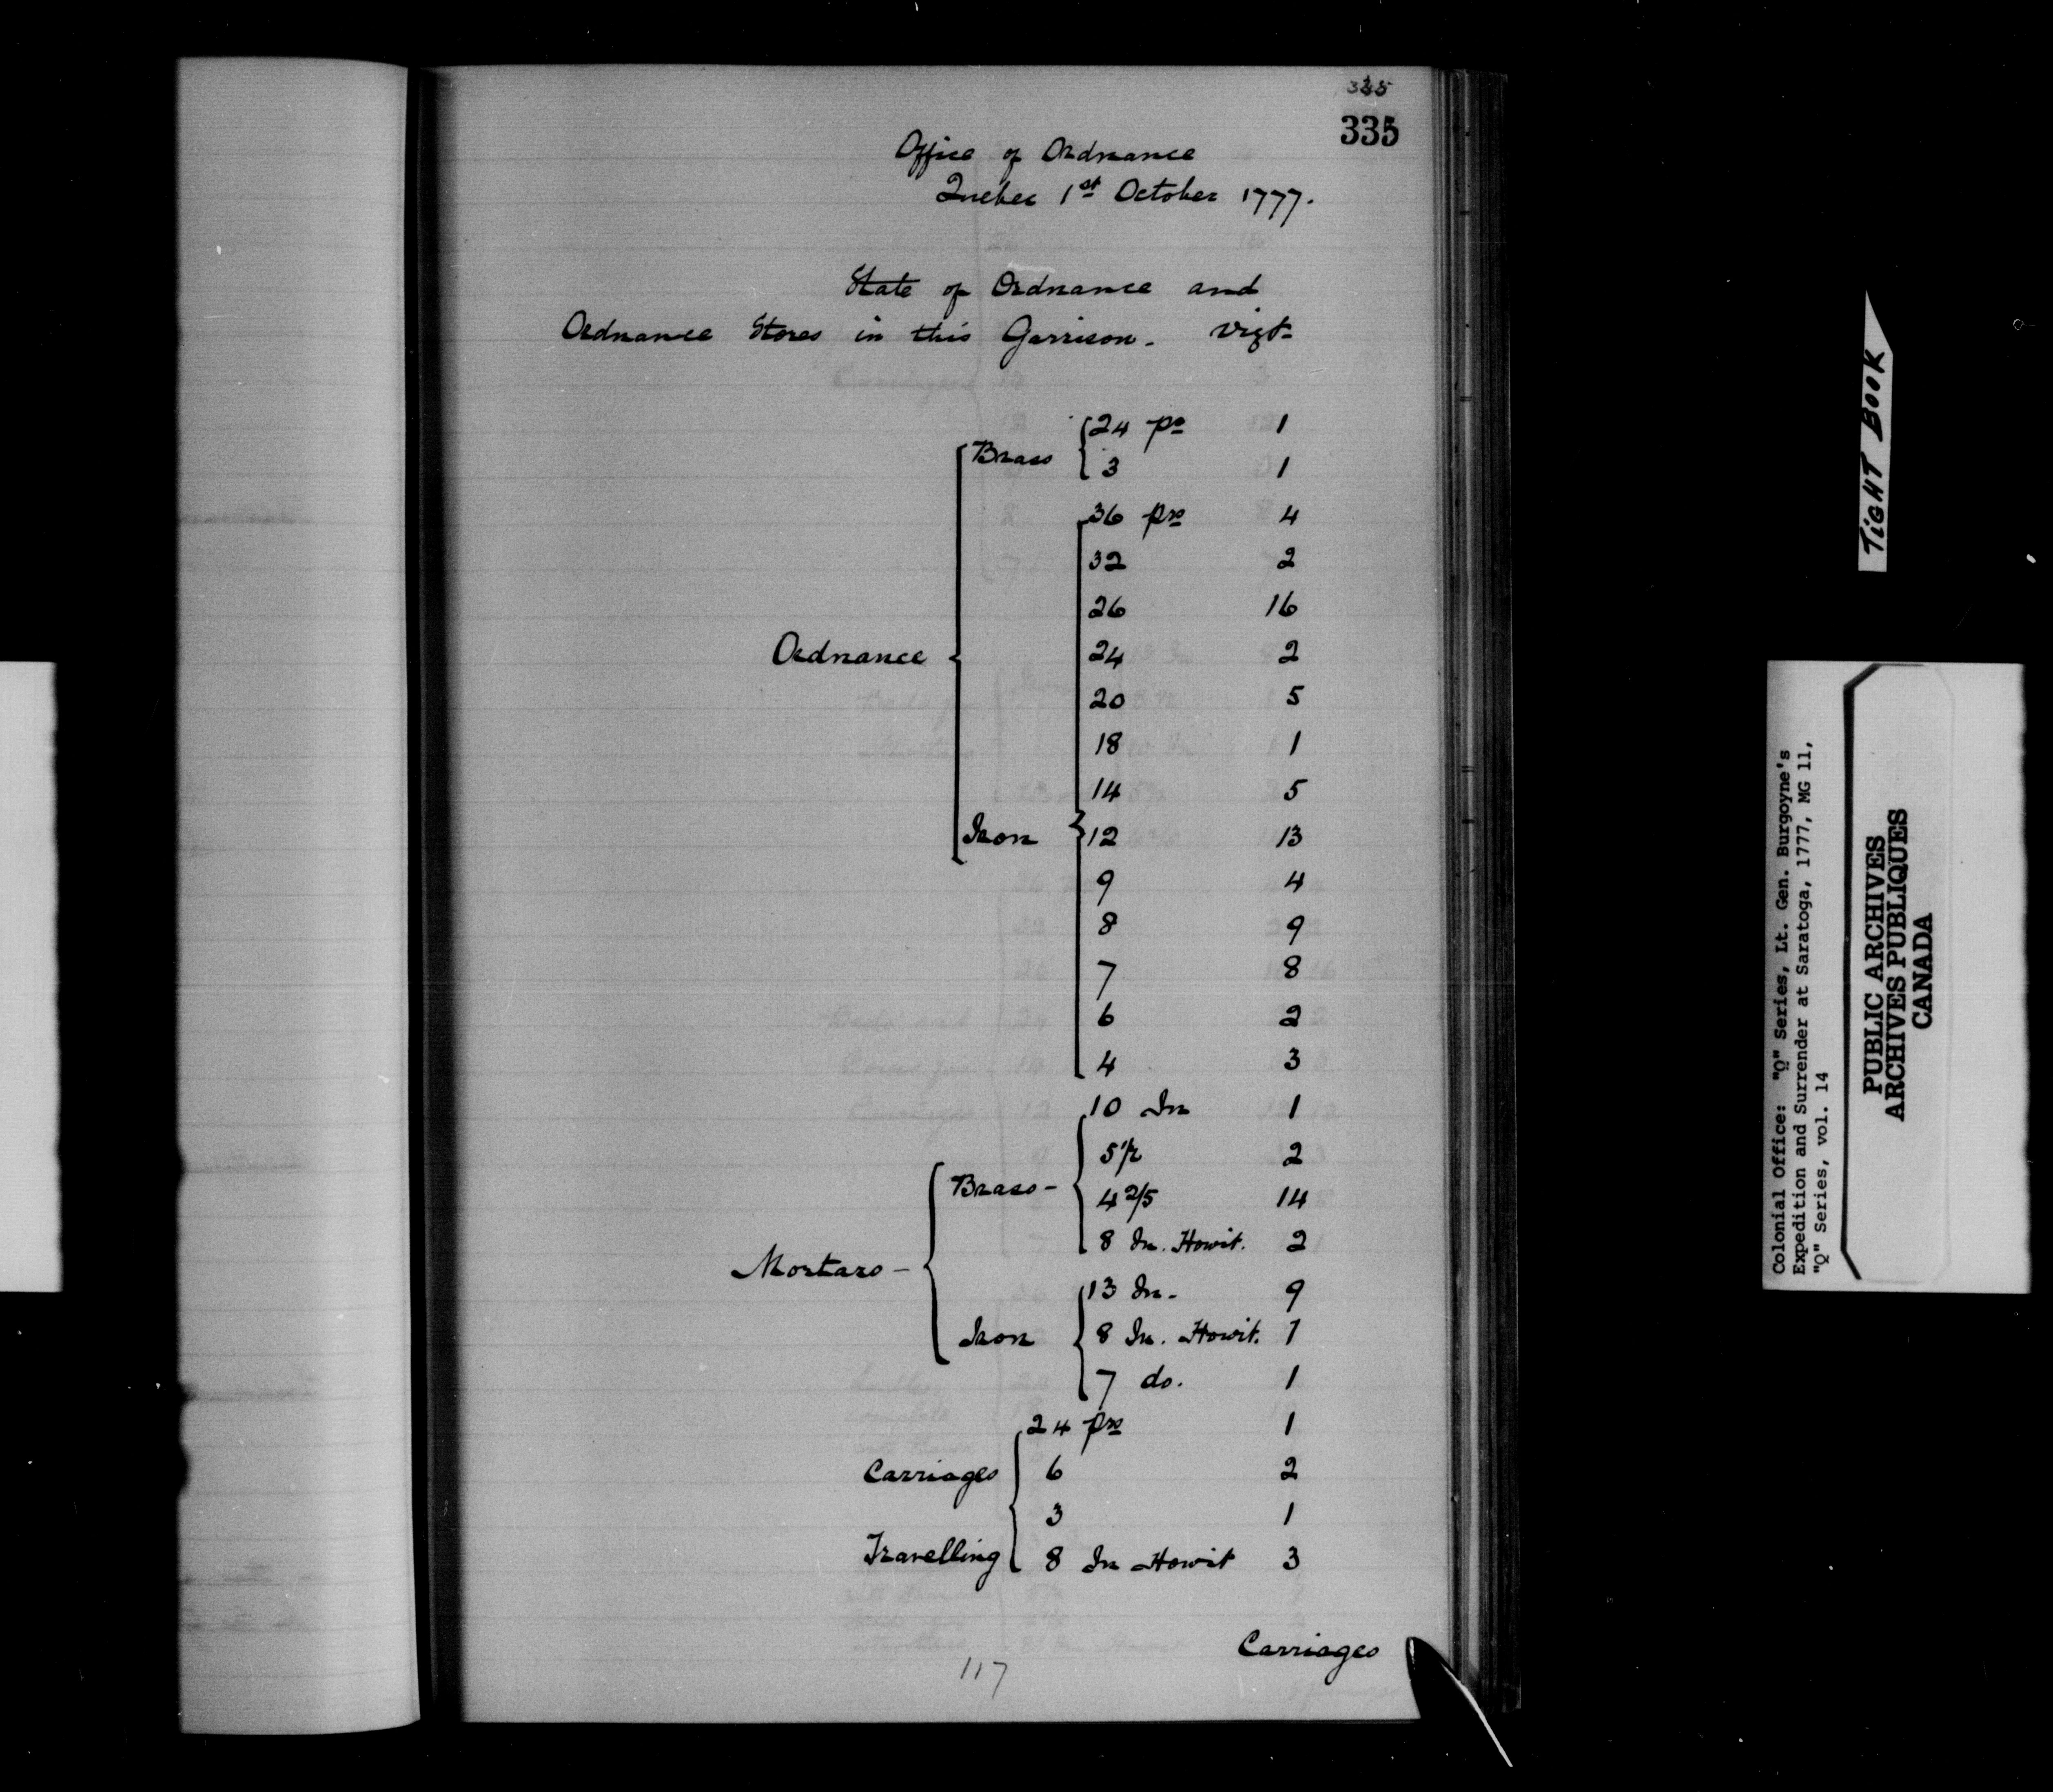 335
335
Office of Ordnance
Quebec 1st October 1777.
State of Ordnance and
Ordnance Stores in this Garrison. Vizt.
Ordnance
Brass
24 prs 1
3 1
Iron
36 prs 4
32 2
26 16
24 2
20 5
18 1
14 5
12 13
9 4
8 9
7 8
6 2
4 3
Mortars -
Brass -
10 In 1
5½ 2
4 2/5 14
8 In. Howit. 2
Iron
13 In. 9
8 In. Howit. 1
7 do. 1
Carriages
Travelling
24 prs 1
6 2
3 1
8 In Howit 3
Carriages
117
TIGHT BOOK
Colonial Office: "Q" Series, Lt. Gen. Burgoyne's
Expedition and Surrender at Saratoga, 1777, MG 11,
"Q" Series, vol. 14
PUBLIC ARCHIVES
ARCHIVES PUBLIQUES
CANADA